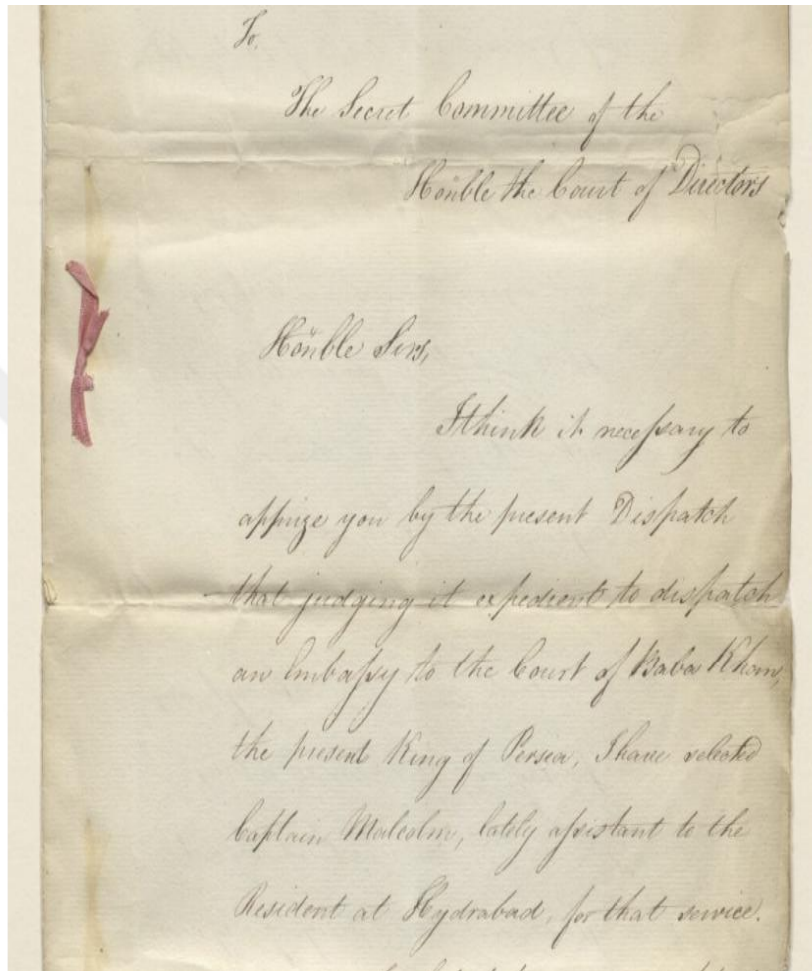 To,
The Secret Committee of the
Honble the Court of Directors
Honble Sirs,
I think it necessary to
apprize you by the present Dispatch
that judging it expedient to dispatch
an Embassy to the Court of Baba Khan,
the present King of Persia, I have selected
Captain Malcolm, lately assistant to the
Resident at Hydrabad, for that service.